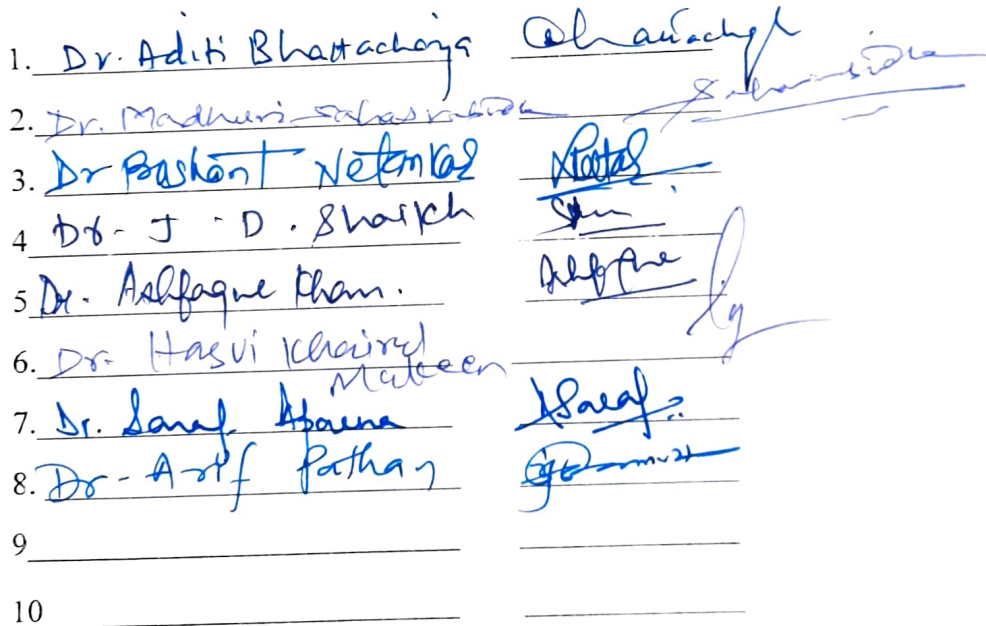 1. Dr. Aditi Bhattacharya
2. Dr. Madhuri Sahasrabudhe
3. Dr Prashant Netankar
4 Dr. J. D. Shaikh
5 Dr. Ashfaque Khan.
6. Dr. Hasvi Khairul
Mateen
7. Dr. Saraf Aparna ASaraf
8. Dr. Arif Pathan
9
10